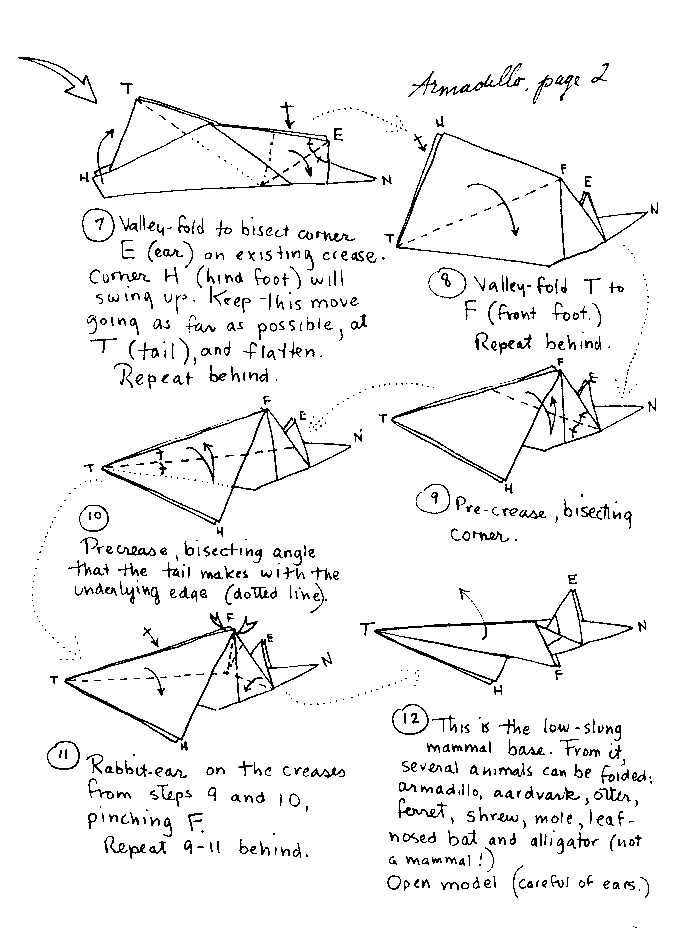 Armadillo, page 2
T
E
H
N
7 Valley-fold to bisect corner
E (ear) on existing crease.
Corner H (hind foot) will
swing up. Keep this move
going as far as possible, at
T (tail), and flatten.
Repeat behind.
H
F
E
N
T
8 Valley-fold T to
F (front foot.)
Repeat behind.
F
E
N
T
H
9 Pre-crease, bisecting
corner.
F
E
N
T
H
10
Precrease, bisecting angle
that the tail makes with the
underlying edge (dotted line).
F
E
N
T
H
11 Rabbit-ear on the creases
from steps 9 and 10,
pinching F.
Repeat 9-11 behind.
E
T
N
F
H
12 This is the low-slung
mammal base. From it,
several animals can be folded:
armadillo, aardvark, otter,
ferret, shrew, mole, leaf-
nosed bat and alligator (not
a mammal!)
Open model (careful of ears.)